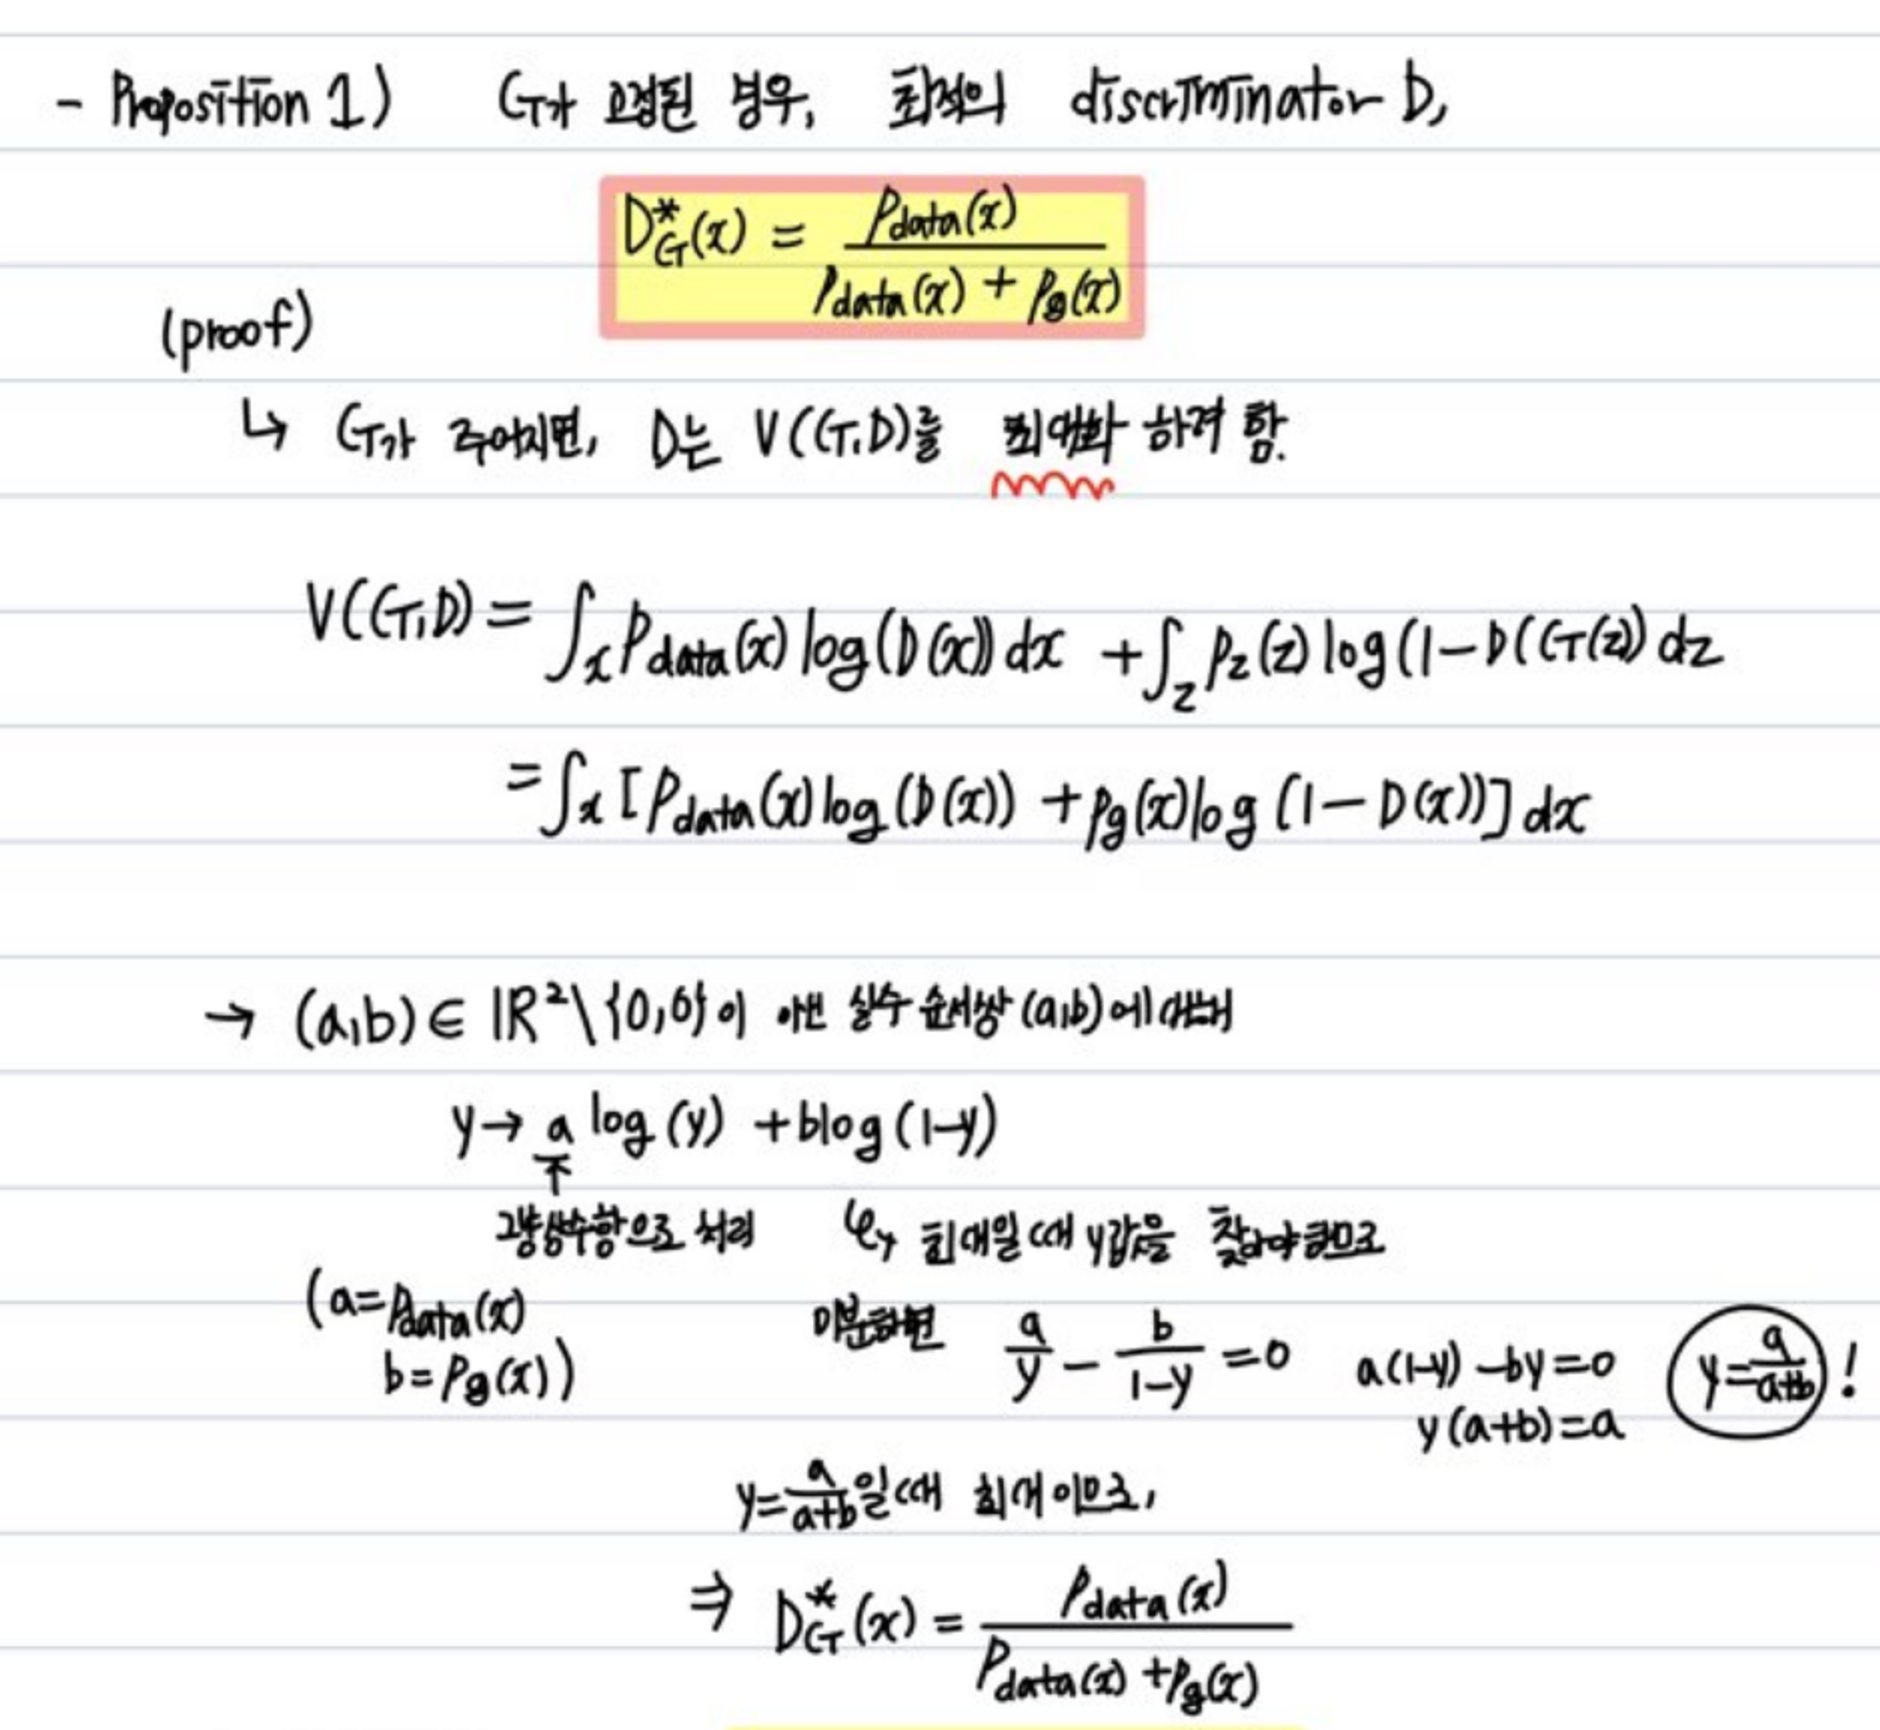 - Proposition 1) G가 고정된 경우, 최적의 discriminator D,
D*_G(x) = p_data(x) / (p_data(x) + p_g(x))
(proof)
↳ G가 주어지면, D는 V(G,D)를 최대화 하려 함.
V(G,D) = ∫_x p_data(x) log(D(x)) dx + ∫_z p_z(z) log(1-D(G(z)) dz
= ∫_x [p_data(x) log(D(x)) + p_g(x) log(1-D(x))] dx
→ (a,b) ∈ ℝ²\{0,0}이 아닌 실수 순서쌍 (a,b)에 대해
y → a log(y) + b log(1-y)
↑
그냥 상수항으로 처리 ↳ 최대일 때 y값을 찾아야하므로
(a = p_data(x)
b = p_g(x))
미분하면 a/y - b/(1-y) = 0 a(1-y) - by = 0 y = a/(a+b) !
y(a+b) = a
y = a/(a+b) 일 때 최대이므로,
⇒ D*_G(x) = p_data(x) / (p_data(x) + p_g(x))